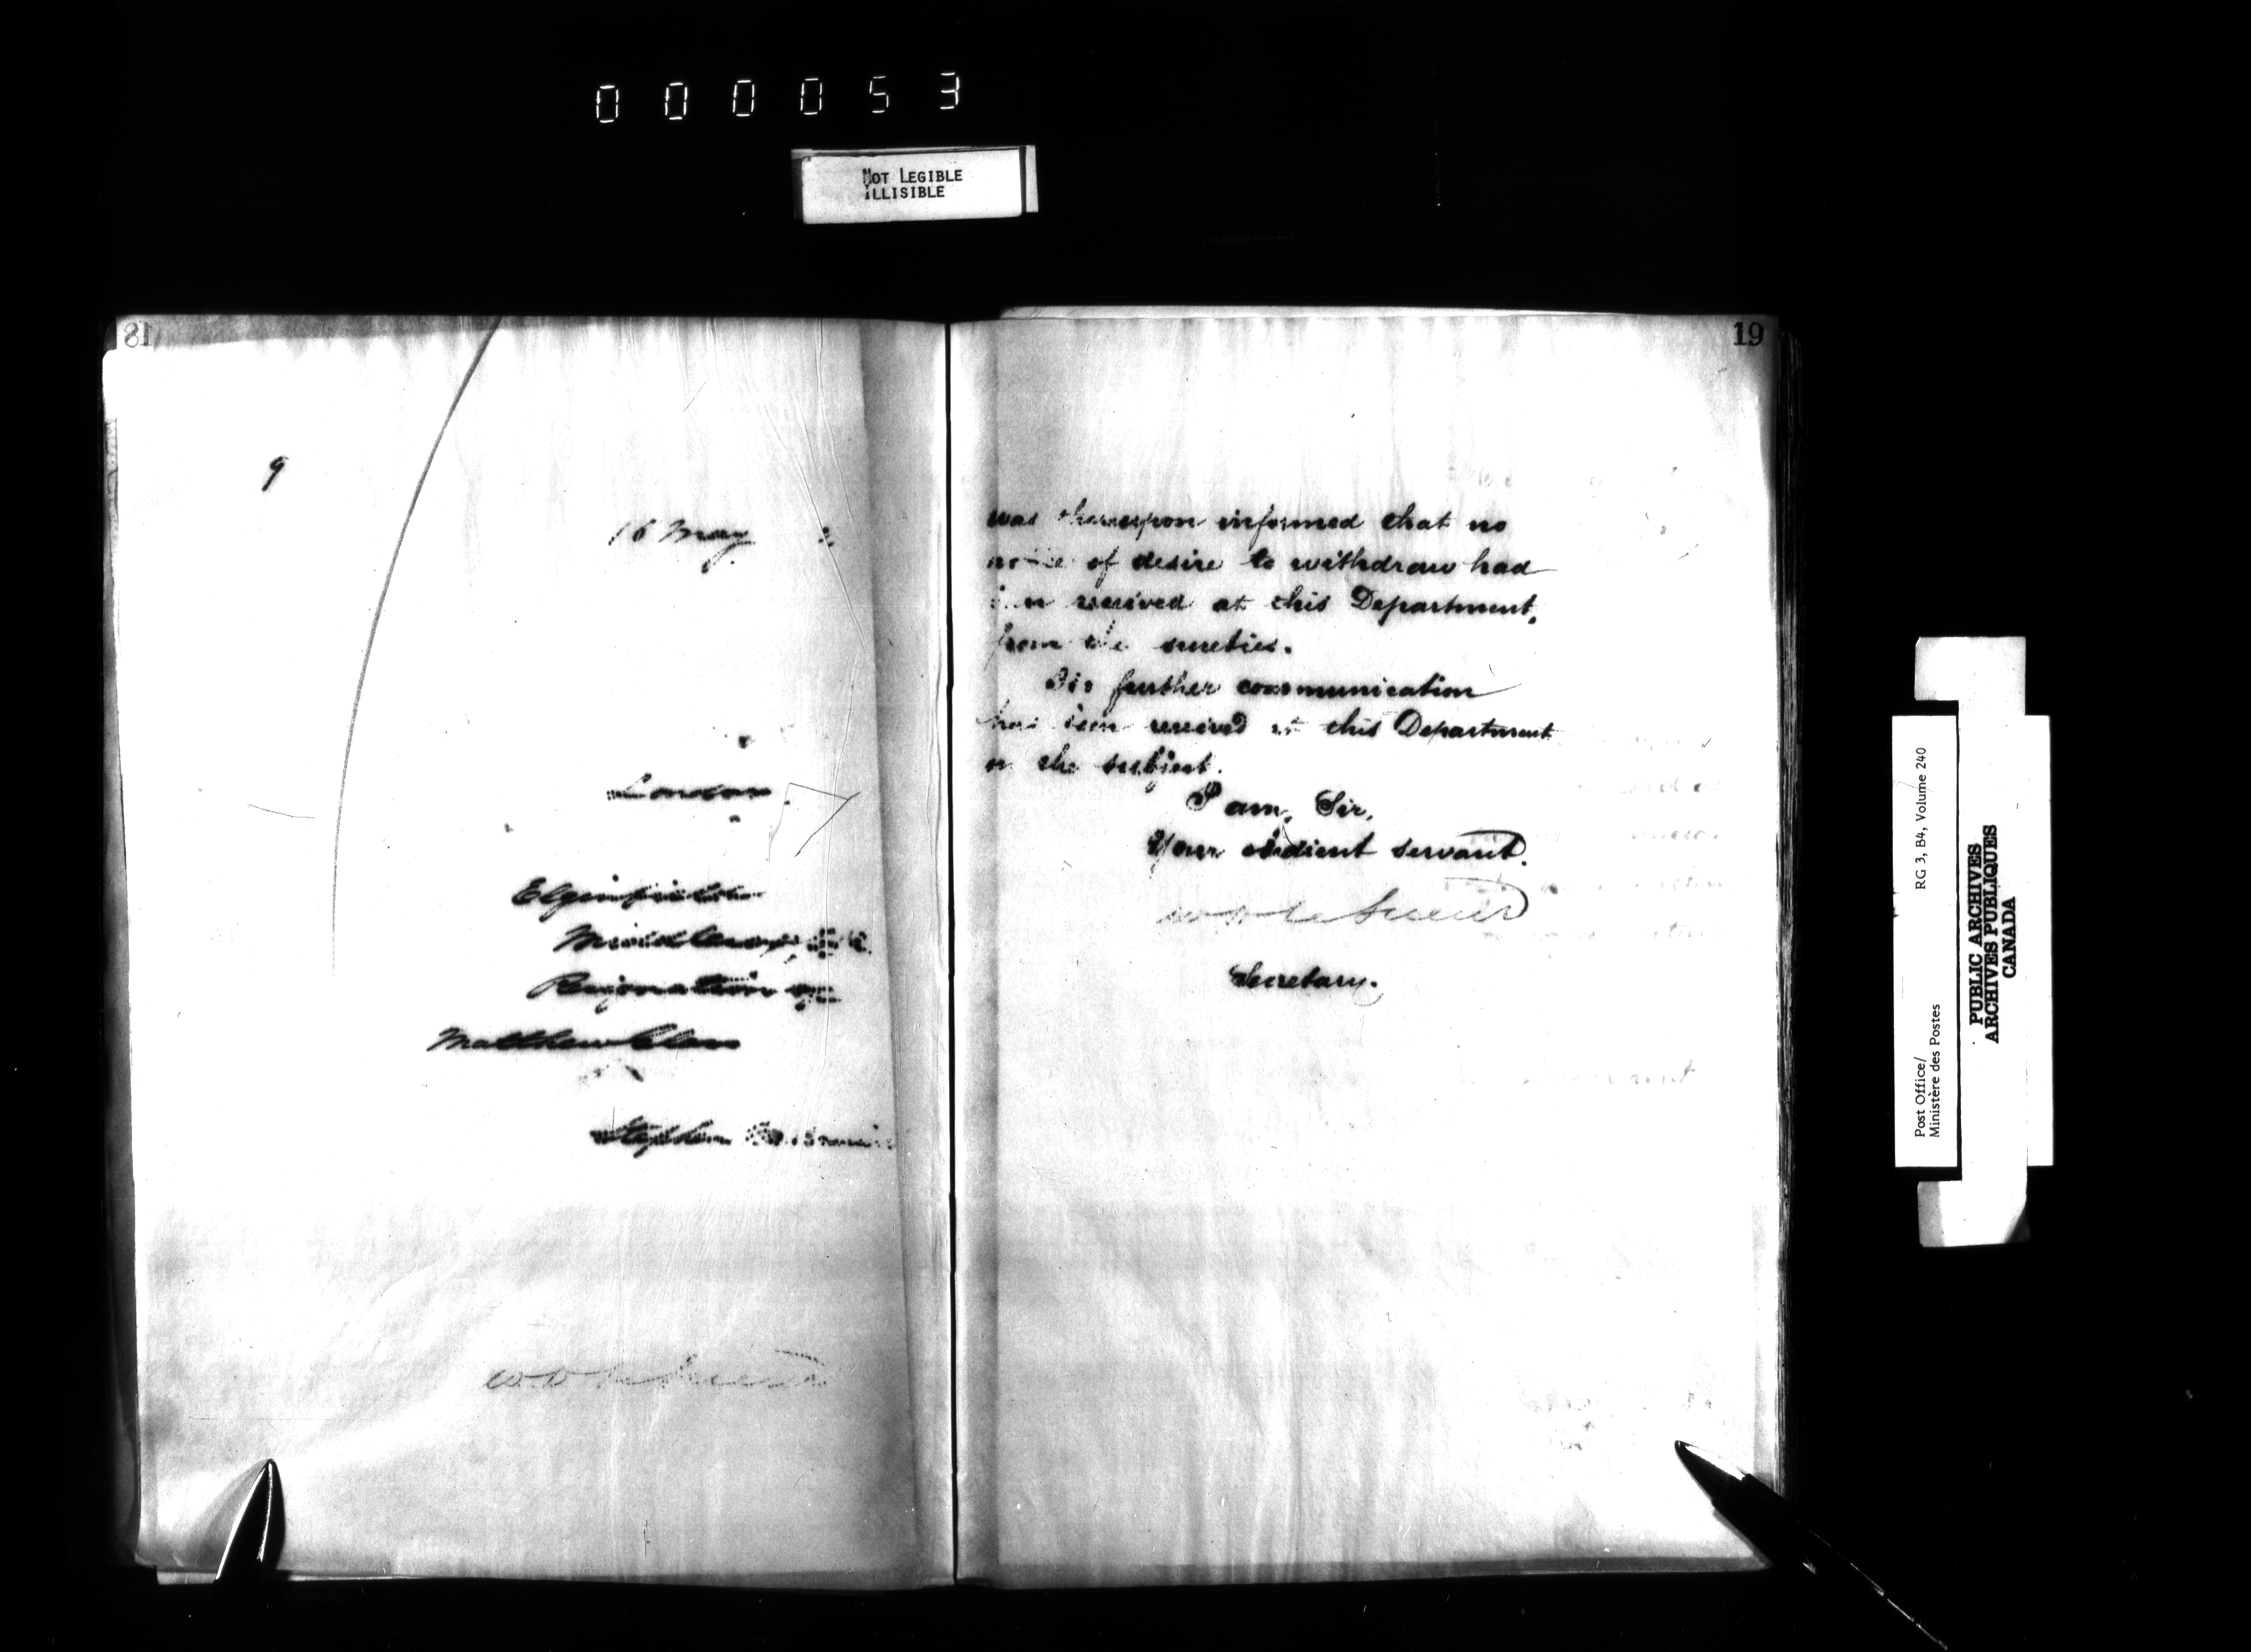 000053
NOT LEGIBLE
ILLISIBLE
81
9
16 May
London
Elginfield
Middlesex,
Resignation of
Matthew Glass
Stephen
W D LeSueur
19
was thereupon informed that no
notice of desire to withdraw had
been received at this Department,
from the sureties.
No further communication
has been received at this Department
on the subject.
I am, Sir,
Your obedient servant.
W D LeSueur
Secretary.
Post Office/
Ministère des Postes
RG 3, B4, Volume 240
PUBLIC ARCHIVES
ARCHIVES PUBLIQUES
CANADA